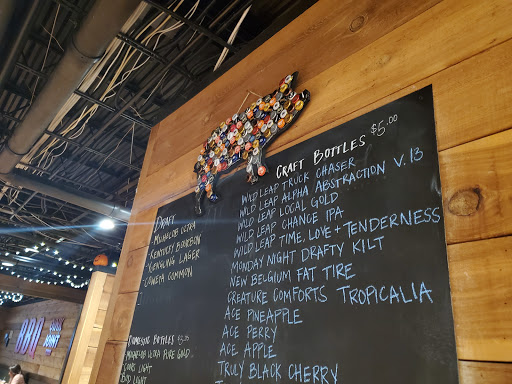 DRAFT
-MICHELOB ULTRA
-KENTUCKY BOURBON
-YUENGLING LAGER
-COWETA COMMON
DOMESTIC BOTTLES $3.50
MICHELOB ULTRA PURE GOLD
COORS LIGHT
BUD LIGHT
CRAFT BOTTLES $5.00
WILD LEAP TRUCK CHASER
WILD LEAP ALPHA ABSTRACTION V. 13
WILD LEAP LOCAL GOLD
WILD LEAP CHANCE IPA
WILD LEAP TIME, LOVE + TENDERNESS
MONDAY NIGHT DRAFTY KILT
NEW BELGIUM FAT TIRE
CREATURE COMFORTS TROPICALIA
ACE PINEAPPLE
ACE PERRY
ACE APPLE
TRULY BLACK CHERRY
BBQ